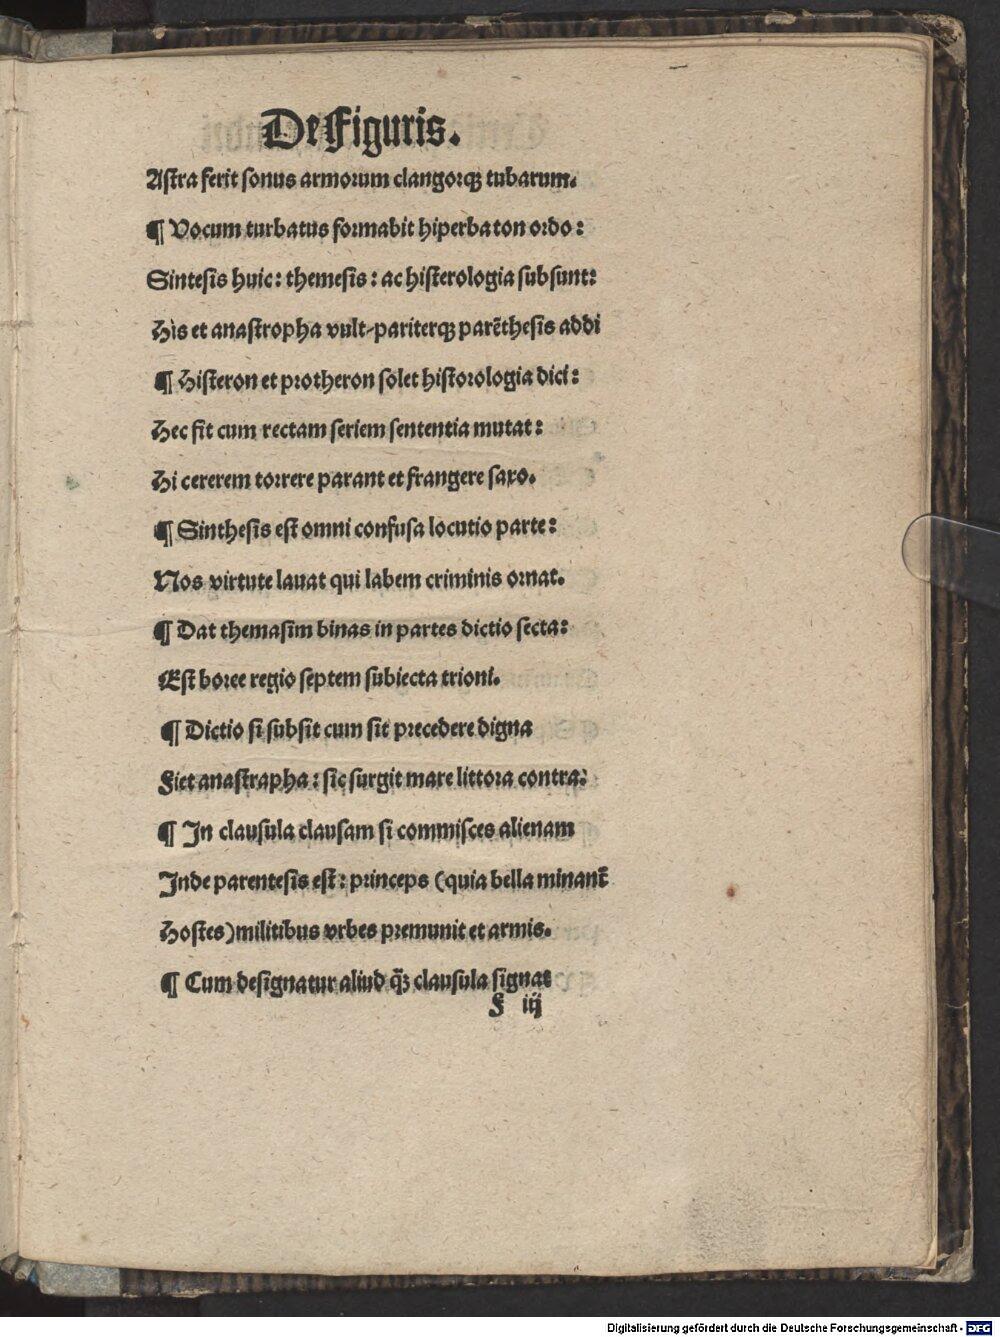 De Figuris.
Astra ferit sonus armorum clangorqꝫ tubarum.
¶ Vocum turbatus formabit hiperbaton ordo:
Sintesis huic: themesis: ac histerologia subsunt:
His et anastropha vult-pariterqꝫ parēthesis addi
¶ Histeron et protheron solet historologia dici:
Hec fit cum rectam seriem sententia mutat:
Hi cererem torrere parant et frangere saxo.
¶ Sinthesis est omni confusa locutio parte:
Nos virtute lauat qui labem criminis ornat.
¶ Dat themasim binas in partes dictio secta:
Est boree regio septem subiecta trioni.
¶ Dictio si subsit cum sit precedere digna
Fiet anastrapha: sic surgit mare littora contra:
¶ In clausula clausam si commisces alienam
Inde parentesis est: princeps (quia bella minant᷑
Hostes) militibus vrbes premunit et armis.
¶ Cum designatur aliud qꝫ̄ clausula signat
F iij
Digitalisierung gefördert durch die Deutsche Forschungsgemeinschaft - DFG